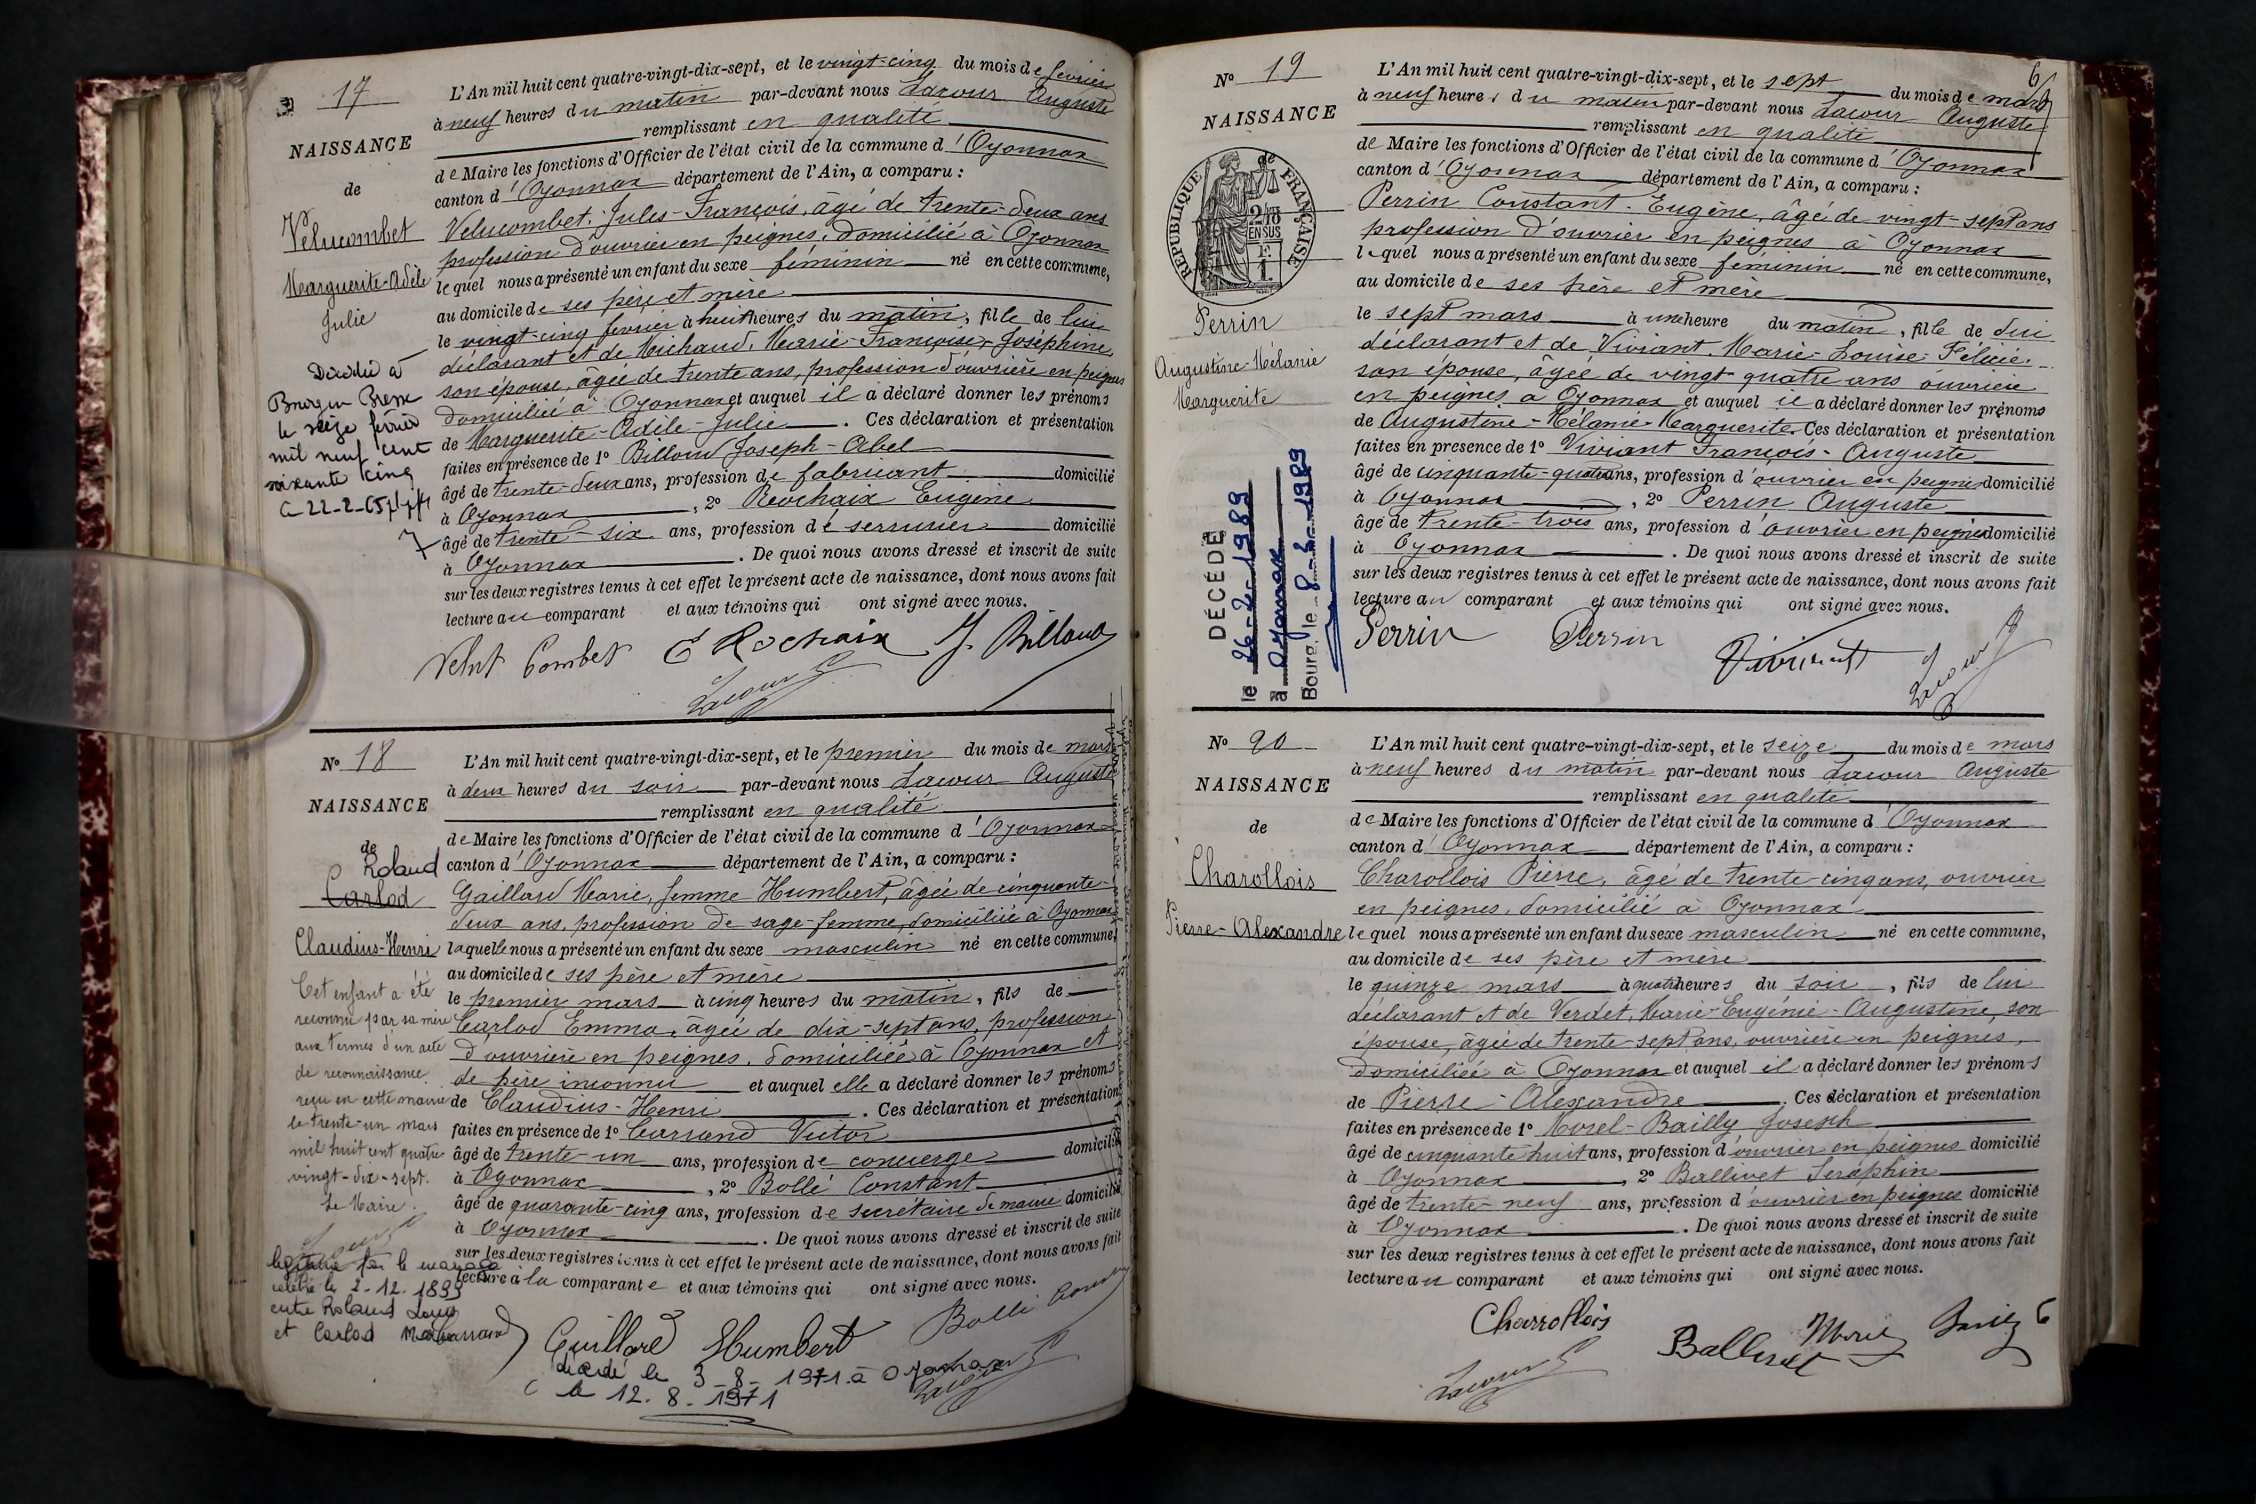 17
NAISSANCE
de
Velucombet
Marguerite-Adèle
Julie
Décédée à
le seize février
mil neuf cent
soixante cinq
22-2-65
L'An mil huit cent quatre-vingt-dix-sept, et le vingt-cinq du mois de février
à neuf heures du matin par-devant nous Lacour Auguste
remplissant en qualité
de Maire les fonctions d'Officier de l'état civil de la commune d'Oyonnax
canton d'Oyonnax département de l'Ain, a comparu :
Velucombet, Jules-François, âgé de trente-deux ans
profession d'ouvrier en peignes, domicilié à Oyonnax
lequel nous a présenté un enfant du sexe féminin né en cette commune,
au domicile de ses père et mère
le vingt-cinq février à huit heures du matin, fille de lui
déclarant et de Michaud, Marie-Françoise-Joséphine,
son épouse, âgée de trente ans, profession d'ouvrière en peignes
domiciliée à Oyonnax et auquel il a déclaré donner les prénoms
de Marguerite-Adèle-Julie. Ces déclaration et présentation
faites en présence de 1° Billoud Joseph-Abel
âgé de trente-deux ans, profession de fabricant domicilié
à Oyonnax, 2° Rochaix Eugène
âgé de trente-six ans, profession de serrurier domicilié
à Oyonnax. De quoi nous avons dressé et inscrit de suite
sur les deux registres tenus à cet effet le présent acte de naissance, dont nous avons fait
lecture au comparant et aux témoins qui ont signé avec nous.
E Rochaix J. Billoud
Lacour
N° 18
NAISSANCE
de
Roland
Carlod
Claudius-Henri
Cet enfant a été
reconnu par sa mère
aux termes d'un acte
de reconnaissance
reçu en cette mairie
le trente-un mars
mil huit cent quatre
vingt-dix-sept.
Le Maire.
Lacour
légitimé par le mariage
célébré le 2-12-1899
entre Roland Louis
et Carlod
L'An mil huit cent quatre-vingt-dix-sept, et le premier du mois de mars
à deux heures du soir par-devant nous Lacour Auguste
remplissant en qualité
de Maire les fonctions d'Officier de l'état civil de la commune d'Oyonnax
canton d'Oyonnax département de l'Ain, a comparu :
Gaillard Marie, femme Humbert, âgée de cinquante-
deux ans, profession de sage-femme, domiciliée à Oyonnax
laquelle nous a présenté un enfant du sexe masculin né en cette commune,
au domicile de ses père et mère
le premier mars à cinq heures du matin, fils de
Carlod Emma, âgée de dix-sept ans, profession
d'ouvrière en peignes, domiciliée à Oyonnax et
de père inconnu et auquel elle a déclaré donner les prénoms
de Claudius-Henri. Ces déclaration et présentation
faites en présence de 1° Carrand Victor
âgé de trente-un ans, profession de concierge domicilié
à Oyonnax, 2° Bollé Constant
âgé de quarante-cinq ans, profession de secrétaire de mairie domicilié
à Oyonnax. De quoi nous avons dressé et inscrit de suite
sur les deux registres tenus à cet effet le présent acte de naissance, dont nous avons fait
lecture à la comparante et aux témoins qui ont signé avec nous.
Humbert Bollé
décédé le 3-8-1971 à Oyonnax
le 12.8.1971
Lacour
6
N° 19
NAISSANCE
de
RÉPUBLIQUE FRANÇAISE
2/10
EN SUS
1F.
Perrin
Augustine-Mélanie
Marguerite
DÉCÉDÉ
le 26-2-1989
à Oyonnax
Bourg, le 8-3-1989
L'An mil huit cent quatre-vingt-dix-sept, et le sept du mois de mars
à neuf heures du matin par-devant nous Lacour Auguste
remplissant en qualité
de Maire les fonctions d'Officier de l'état civil de la commune d'Oyonnax
canton d'Oyonnax département de l'Ain, a comparu :
Perrin Constant-Eugène, âgé de vingt-sept ans
profession d'ouvrier en peignes à Oyonnax
lequel nous a présenté un enfant du sexe féminin né en cette commune,
au domicile de ses père et mère
le sept mars à une heure du matin, fille de lui
déclarant et de Viviant Marie-Louise-Félicie,
son épouse, âgée de vingt-quatre ans ouvrière
en peignes à Oyonnax et auquel il a déclaré donner les prénoms
de Augustine-Mélanie-Marguerite. Ces déclaration et présentation
faites en presence de 1° Viviant François-Auguste
âgé de cinquante-quatre ans, profession d'ouvrier en peignes domicilié
à Oyonnax, 2° Perrin Auguste
âgé de trente-trois ans, profession d'ouvrier en peignes domicilié
à Oyonnax. De quoi nous avons dressé et inscrit de suite
sur les deux registres tenus à cet effet le présent acte de naissance, dont nous avons fait
lecture au comparant et aux témoins qui ont signé avec nous.
Perrin Perrin Viviant
Lacour
N° 20
NAISSANCE
de
Charollois
Pierre-Alexandre
L'An mil huit cent quatre-vingt-dix-sept, et le seize du mois de mars
à neuf heures du matin par-devant nous Lacour Auguste
remplissant en qualité
de Maire les fonctions d'Officier de l'état civil de la commune d'Oyonnax
canton d'Oyonnax département de l'Ain, a comparu :
Charollois Pierre, âgé de trente-cinq ans, ouvrier
en peignes, domicilié à Oyonnax
lequel nous a présenté un enfant du sexe masculin né en cette commune,
au domicile de ses père et mère
le quinze mars à quatre heures du soir, fils de lui
déclarant et de Verdet, Marie-Eugénie-Augustine, son
épouse, âgée de trente-sept ans, ouvrière en peignes,
domiciliée à Oyonnax et auquel il a déclaré donner les prénoms
de Pierre-Alexandre. Ces déclaration et présentation
faites en présence de 1° Morel-Bailly Joseph
âgé de cinquante huit ans, profession d'ouvrier en peignes domicilié
à Oyonnax, 2° Ballivet Séraphin
âgé de trente-neuf ans, profession d'ouvrier en peignes domicilié
à Oyonnax. De quoi nous avons dressé et inscrit de suite
sur les deux registres tenus à cet effet le présent acte de naissance, dont nous avons fait
lecture au comparant et aux témoins qui ont signé avec nous.
Charrollois
Ballivet
Lacour